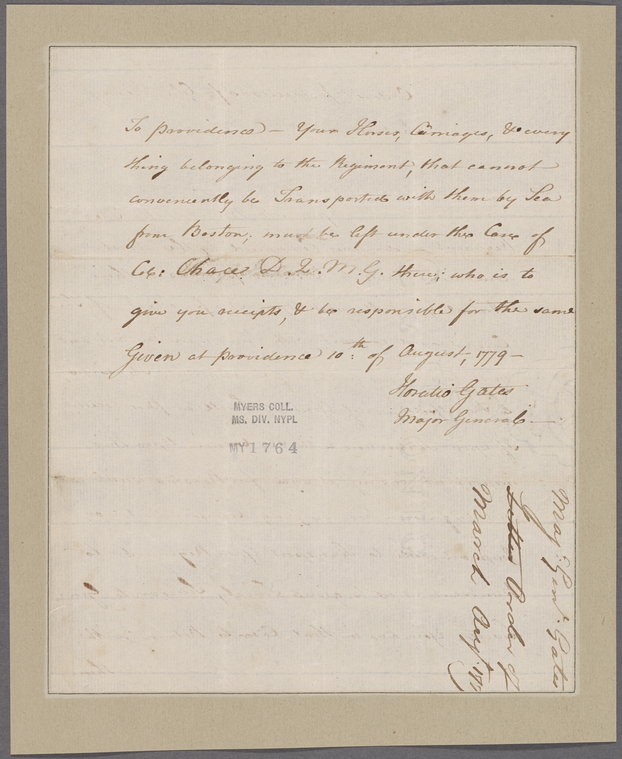 To providence — Your Horses, Carriages, & every
thing belonging to the Regiment, that cannot
conveniently be Transported with them by Sea
from Boston; must be left under the Care of
Col: Chace D. Q. M. G. there; who is to
give you receipts, & be responsible for the same
Given at providence 10:th of August, 1779 —
Horatio Gates
Major General —
MYERS COLL.
MS. DIV. NYPL
MY 1764
Majr. Genl. Gates
Letter Order of
March Augt.